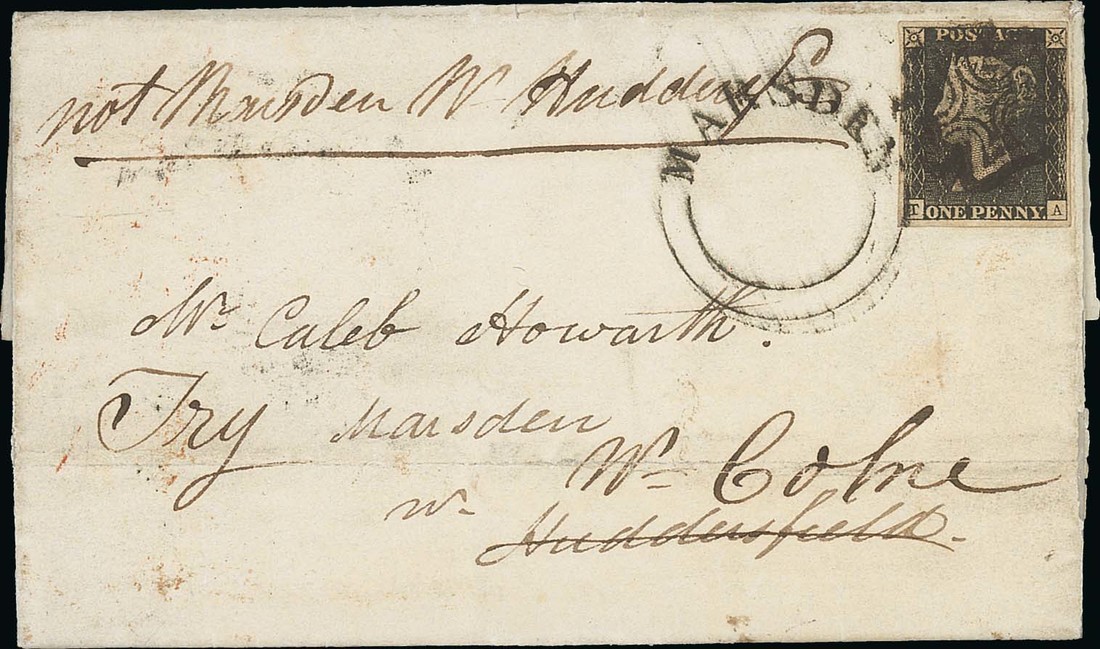 not Marsden Nr Hudders
MARSDEN
POSTAGE
T ONE PENNY. A
Mr Caleb Howarth.
Try Marsden
Nr Colne
nr
Huddersfield.